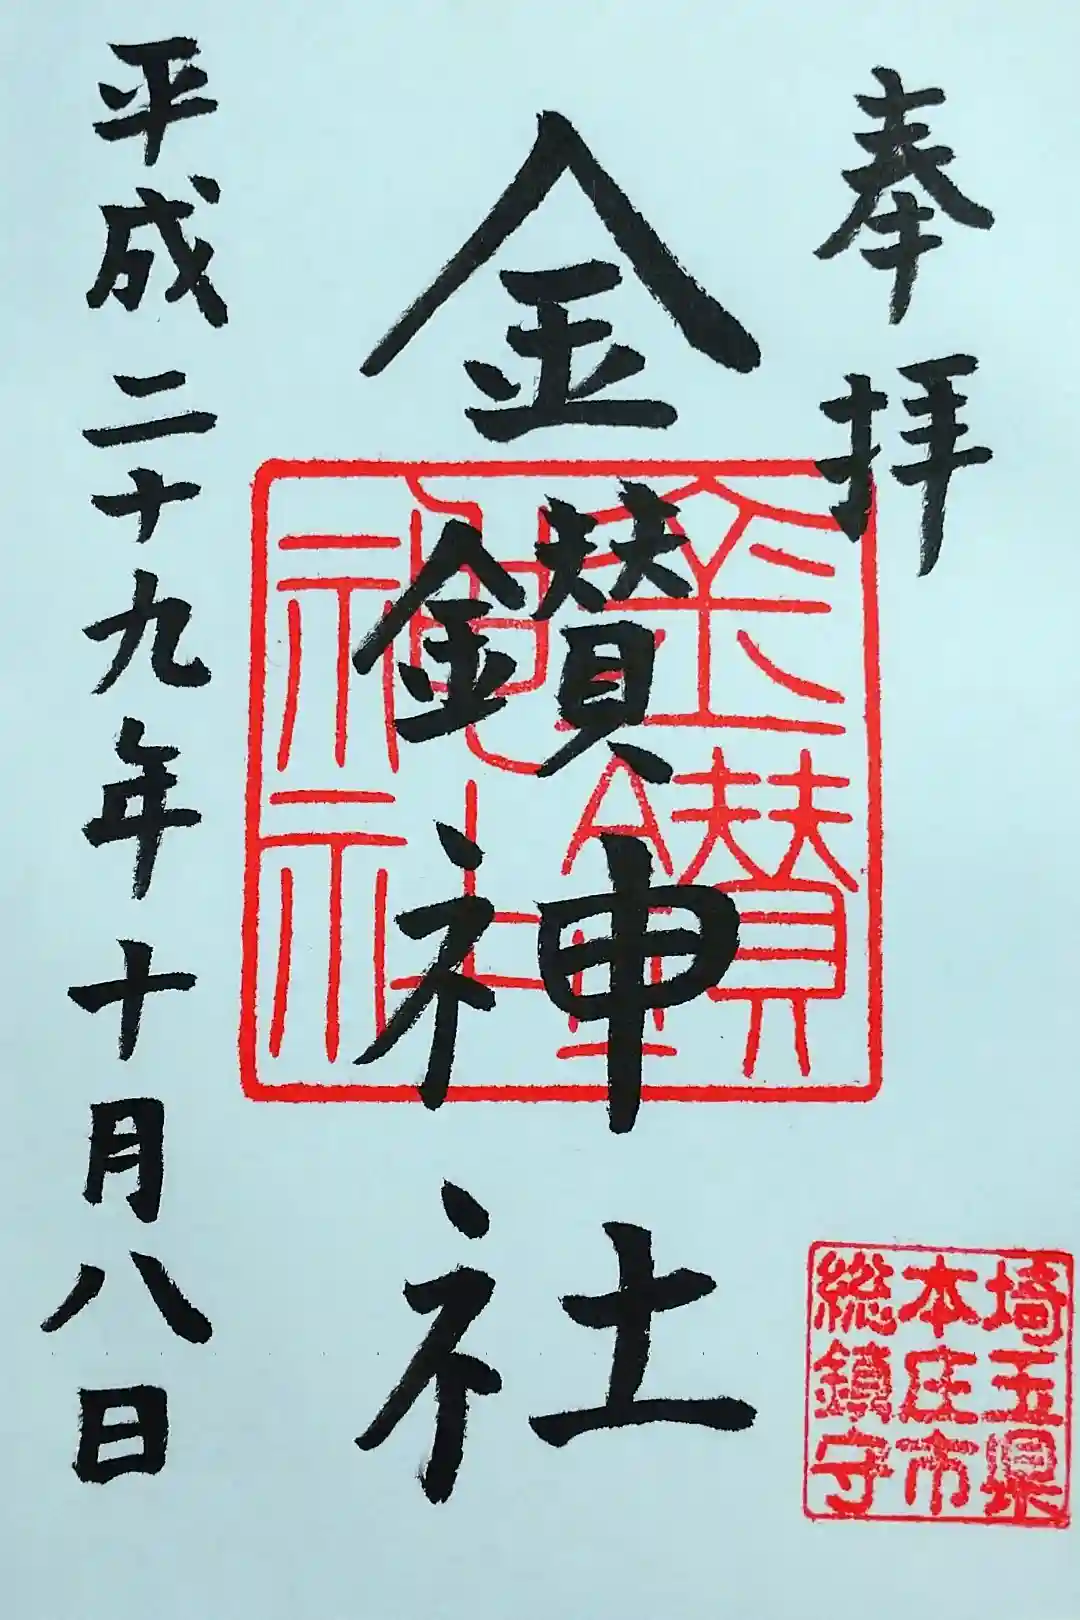 奉拝
金鑚神社
平成二十九年十月八日
金鑚
神社
埼玉県
本庄市
総鎮守